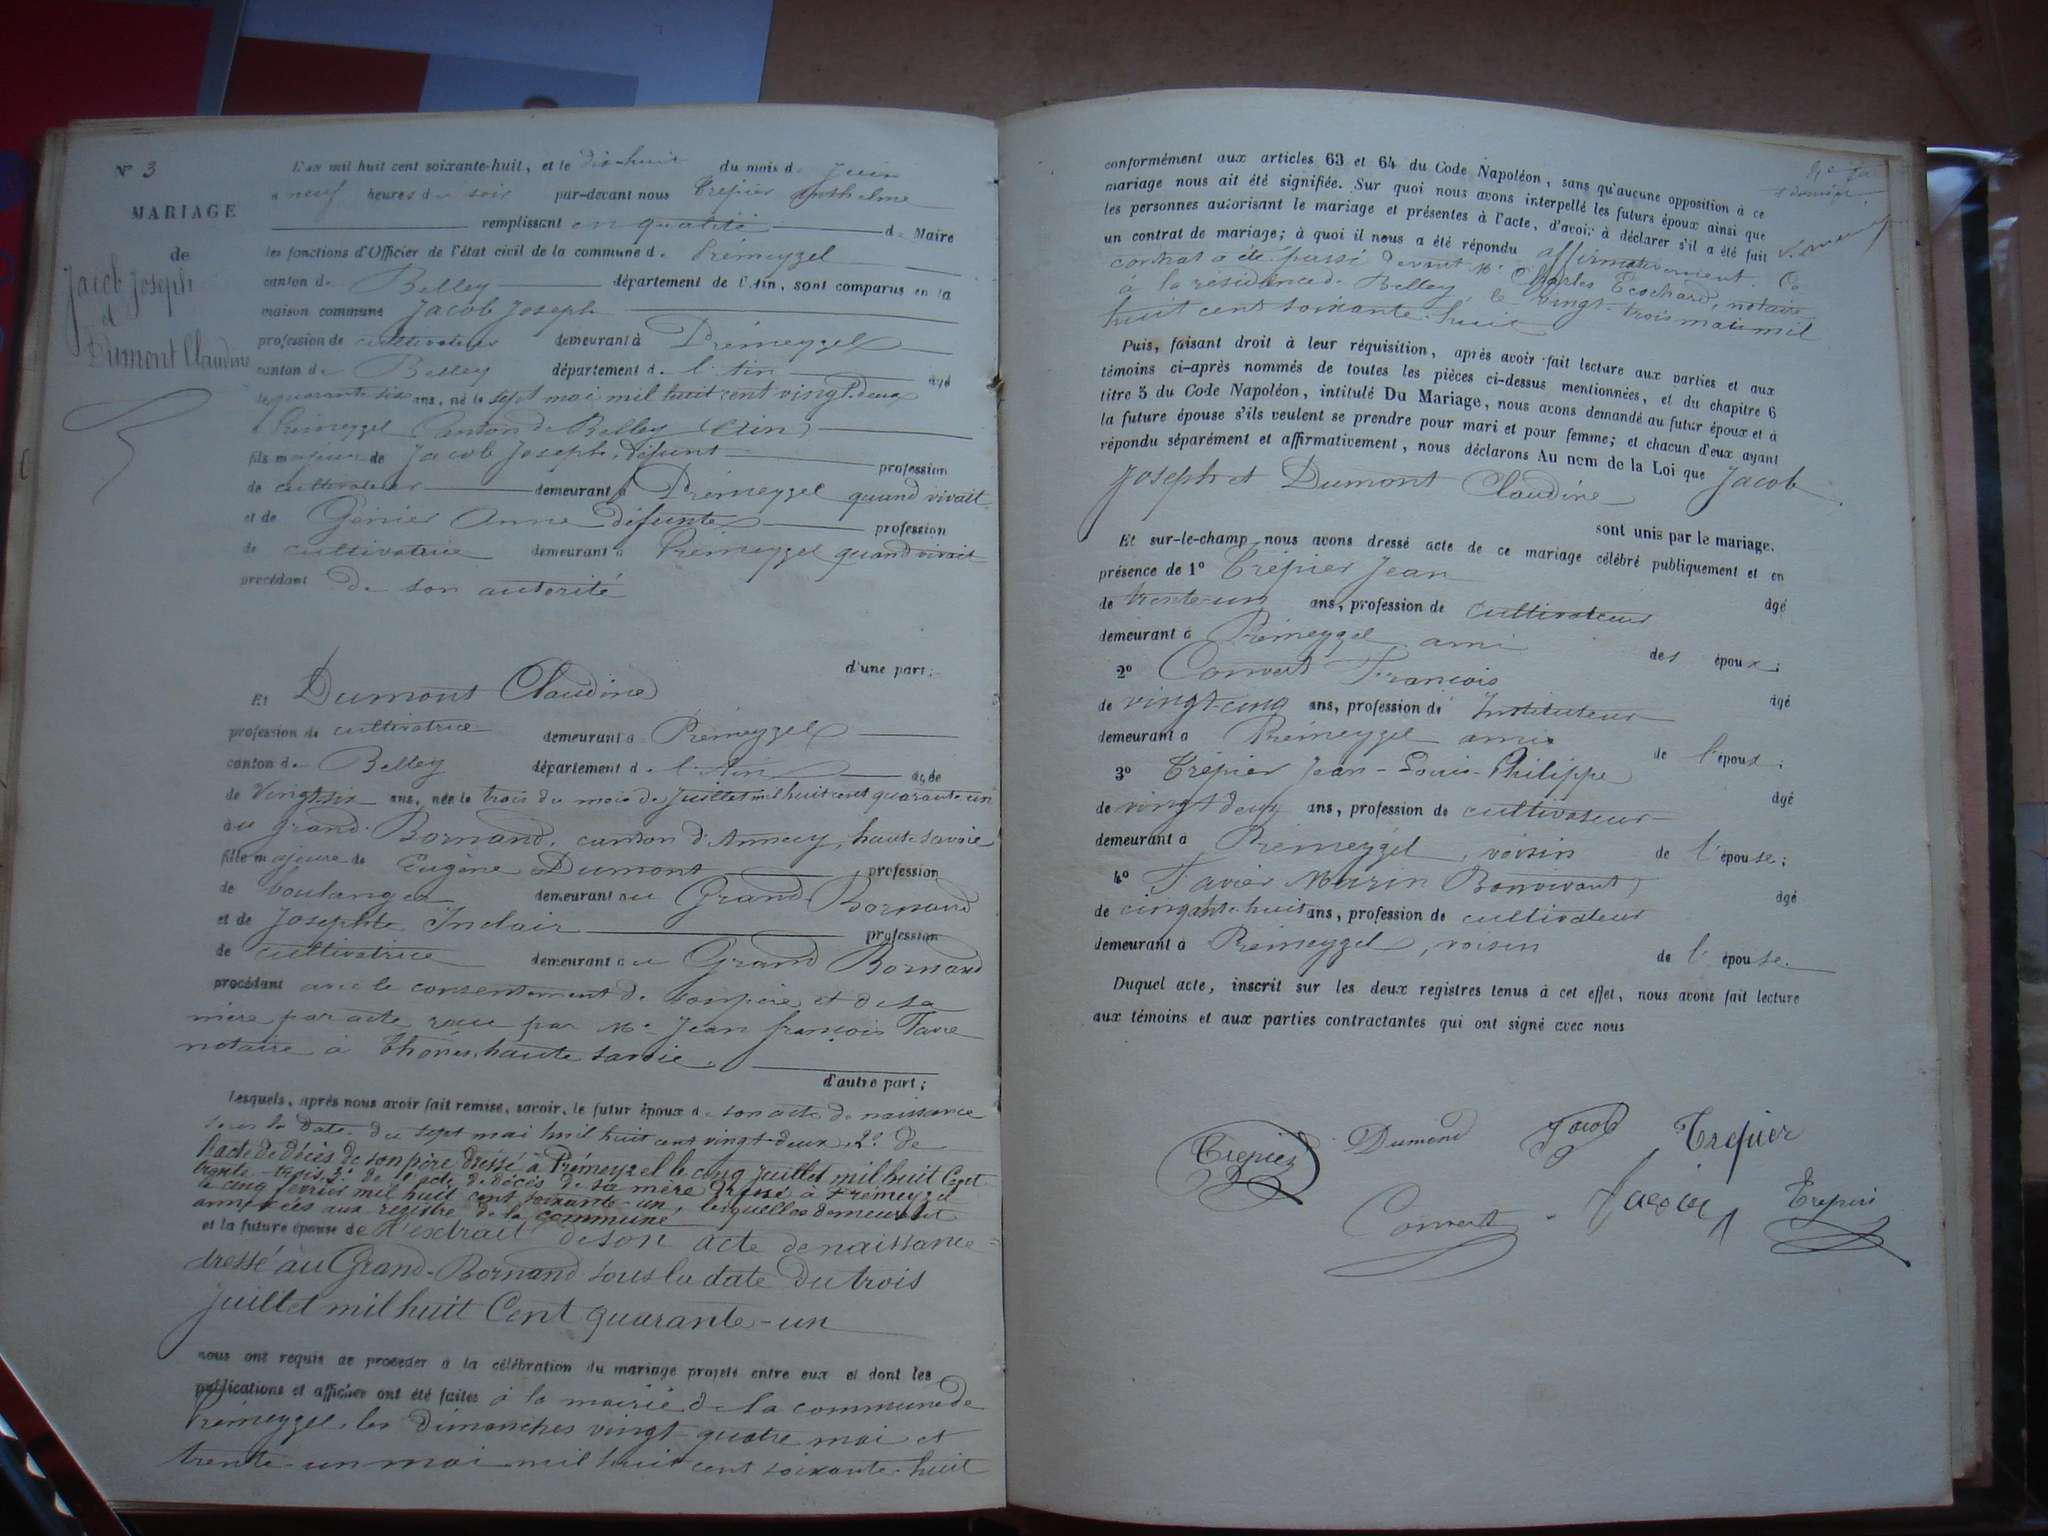 N° 3
MARIAGE
de
Jacob Joseph
et
Dumont Claudine
L'an mil huit cent soixante-huit, et le dix-huit du mois de Juin
à neuf heures du soir par-devant nous Trepier Anthelme
remplissant en qualité de Maire
les fonctions d'Officier de l'état civil de la commune de Prémeyzel
canton de Belley département de l'Ain, sont comparus en la
maison commune Jacob Joseph
profession de cultivateur demeurant à Prémeyzel
canton de Belley département de l'Ain âgé
de quarante six ans, né le sept mai mil huit cent vingt-deux
à Prémeyzel Canton de Belley (Ain)
fils majeur de Jacob Joseph, défunt profession
de cultivateur demeurant à Prémeyzel quand vivait
et de Génier Anne défunte profession
de cultivatrice demeurant à Prémeyzel quand vivait
procédant de son autorité
d'une part;
Et Dumont Claudine
profession de cultivatrice demeurant à Prémeyzel
canton de Belley département de l'Ain âgée
de Vingt six ans, née le trois du mois de Juillet mil huit cent quarante un
au Grand-Bornand, canton d'Annecy, haute Savoie
fille majeure de Eugène Dumont profession
de boulanger demeurant au Grand Bornand
et de Josephte Inclair profession
de cultivatrice demeurant au Grand Bornand
procédant avec le consentement de son père et de sa
mère par acte reçu par Me Jean françois Favre
notaire à Thones, haute Savoie.
d'autre part;
Lesquels, après nous avoir fait remise, savoir, le futur époux de son acte de naissance
sous la date du sept mai mil huit cent vingt-deux, 2° de
l'acte de décès de son père dressé à Prémeyzel le cinq juillet mil huit Cent
trente-trois, 3° de l'acte de décès de sa mère dressé à Prémeyzel
le cinq février mil huit cent soixante-un, lesquelles demeurent
annexées aux registre de la commune
et la future épouse de l'extrait de son acte de naissance
dressé au Grand-Bornand sous la date du trois
juillet mil huit Cent quarante-un
nous ont requis de procéder à la célébration du mariage projeté entre eux et dont les
publications et affiches ont été faites à la mairie de la commune de
Prémeyzel, les dimanches vingt-quatre mai et
trente-un mai mil huit cent soixante-huit
conformément aux articles 63 et 64 du Code Napoléon, sans qu'aucune opposition à ce
mariage nous ait été signifiée. Sur quoi nous avons interpellé les futurs époux ainsi que
les personnes autorisant le mariage et présentes à l'acte, d'avoir à déclarer s'il a été fait
un contrat de mariage; à quoi il nous a été répondu affirmativement. Ce
contrat a été passé devant Me Charles Tcochard, notaire
à la résidence de Belley, le vingt-trois mai mil
huit cent soixante-huit
Puis, faisant droit à leur réquisition, après avoir fait lecture aux parties et aux
témoins ci-après nommés de toutes les pièces ci-dessus mentionnées, et du chapitre 6
titre 5 du Code Napoléon, intitulé Du Mariage, nous avons demandé au futur époux et à
la future épouse s'ils veulent se prendre pour mari et pour femme; et chacun d'eux ayant
répondu séparément et affirmativement, nous déclarons Au nom de la Loi que Jacob
Joseph et Dumont Claudine
sont unis par le mariage.
Et sur-le-champ nous avons dressé acte de ce mariage célébré publiquement et en
présence de 1° Trépier Jean âgé
de trente-un ans, profession de cultivateur
demeurant à Prémeyzel ami des époux;
2° Convert François âgé
de vingt-cinq ans, profession de Instituteur
demeurant à Prémeyzel ami de l'époux;
3° Trépier Jean-Louis-Philippe âgé
de vingt deux ans, profession de cultivateur
demeurant à Prémeyzel, voisin de l'épouse;
4° Favier Marin Bonvivant, âgé
de cinquante-huit ans, profession de cultivateur
demeurant à Prémeyzel, voisin de l'épouse.
Duquel acte, inscrit sur les deux registres tenus à cet effet, nous avons fait lecture
aux témoins et aux parties contractantes qui ont signé avec nous
Trepier Dumond Jacob Trepier
Convert Favier Trepier